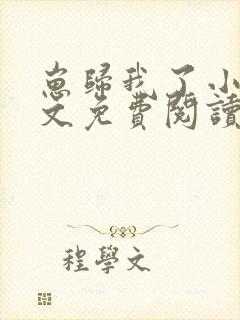 崽歸我了小
文免費閱讀
程學文